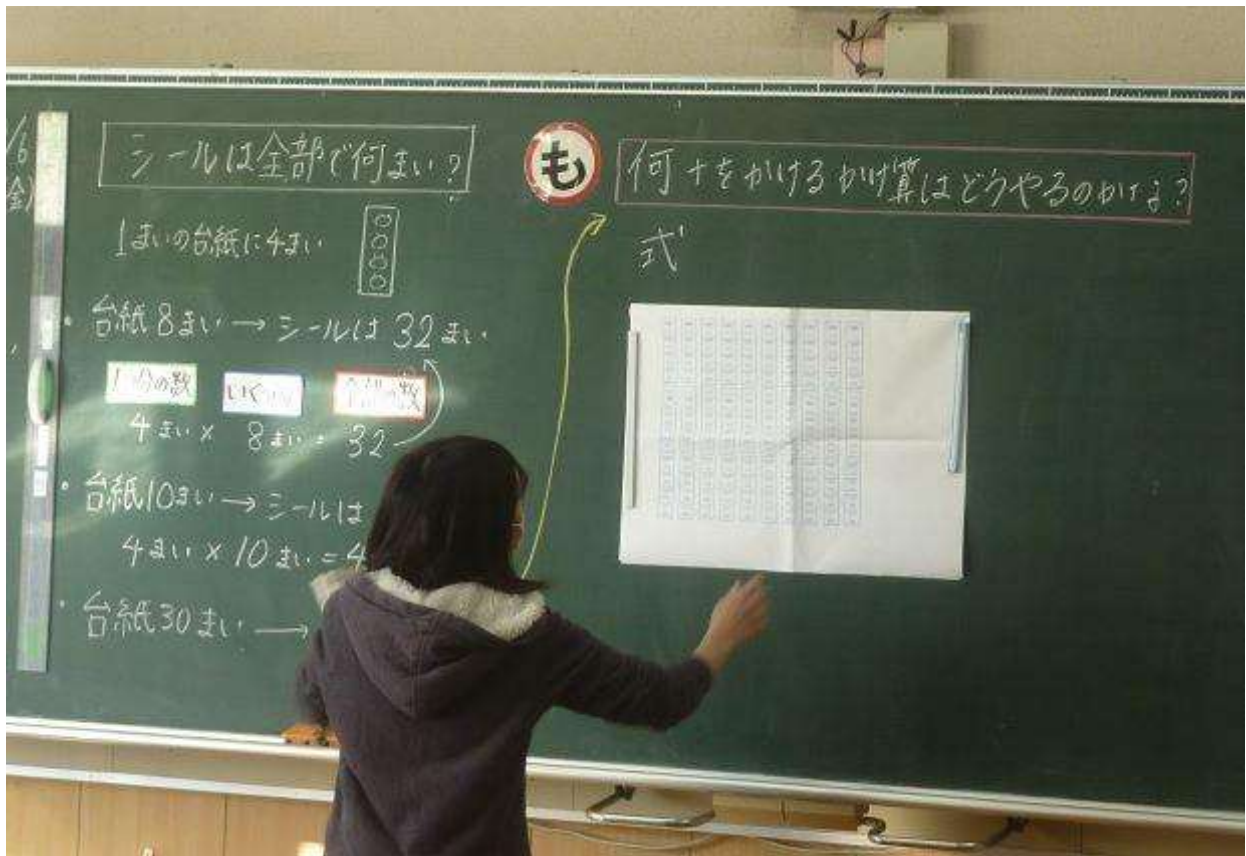 シールは全部で何まい?
1まいの台紙に4まい
・台紙8まい→シールは32まい
1つ分の数 いくつ分 全部の数
4まい× 8まい= 32
・台紙10まい→シールは
4まい×10まい=4
・台紙30まい→
も
何十をかけるかけ算はどうやるのかける?
式